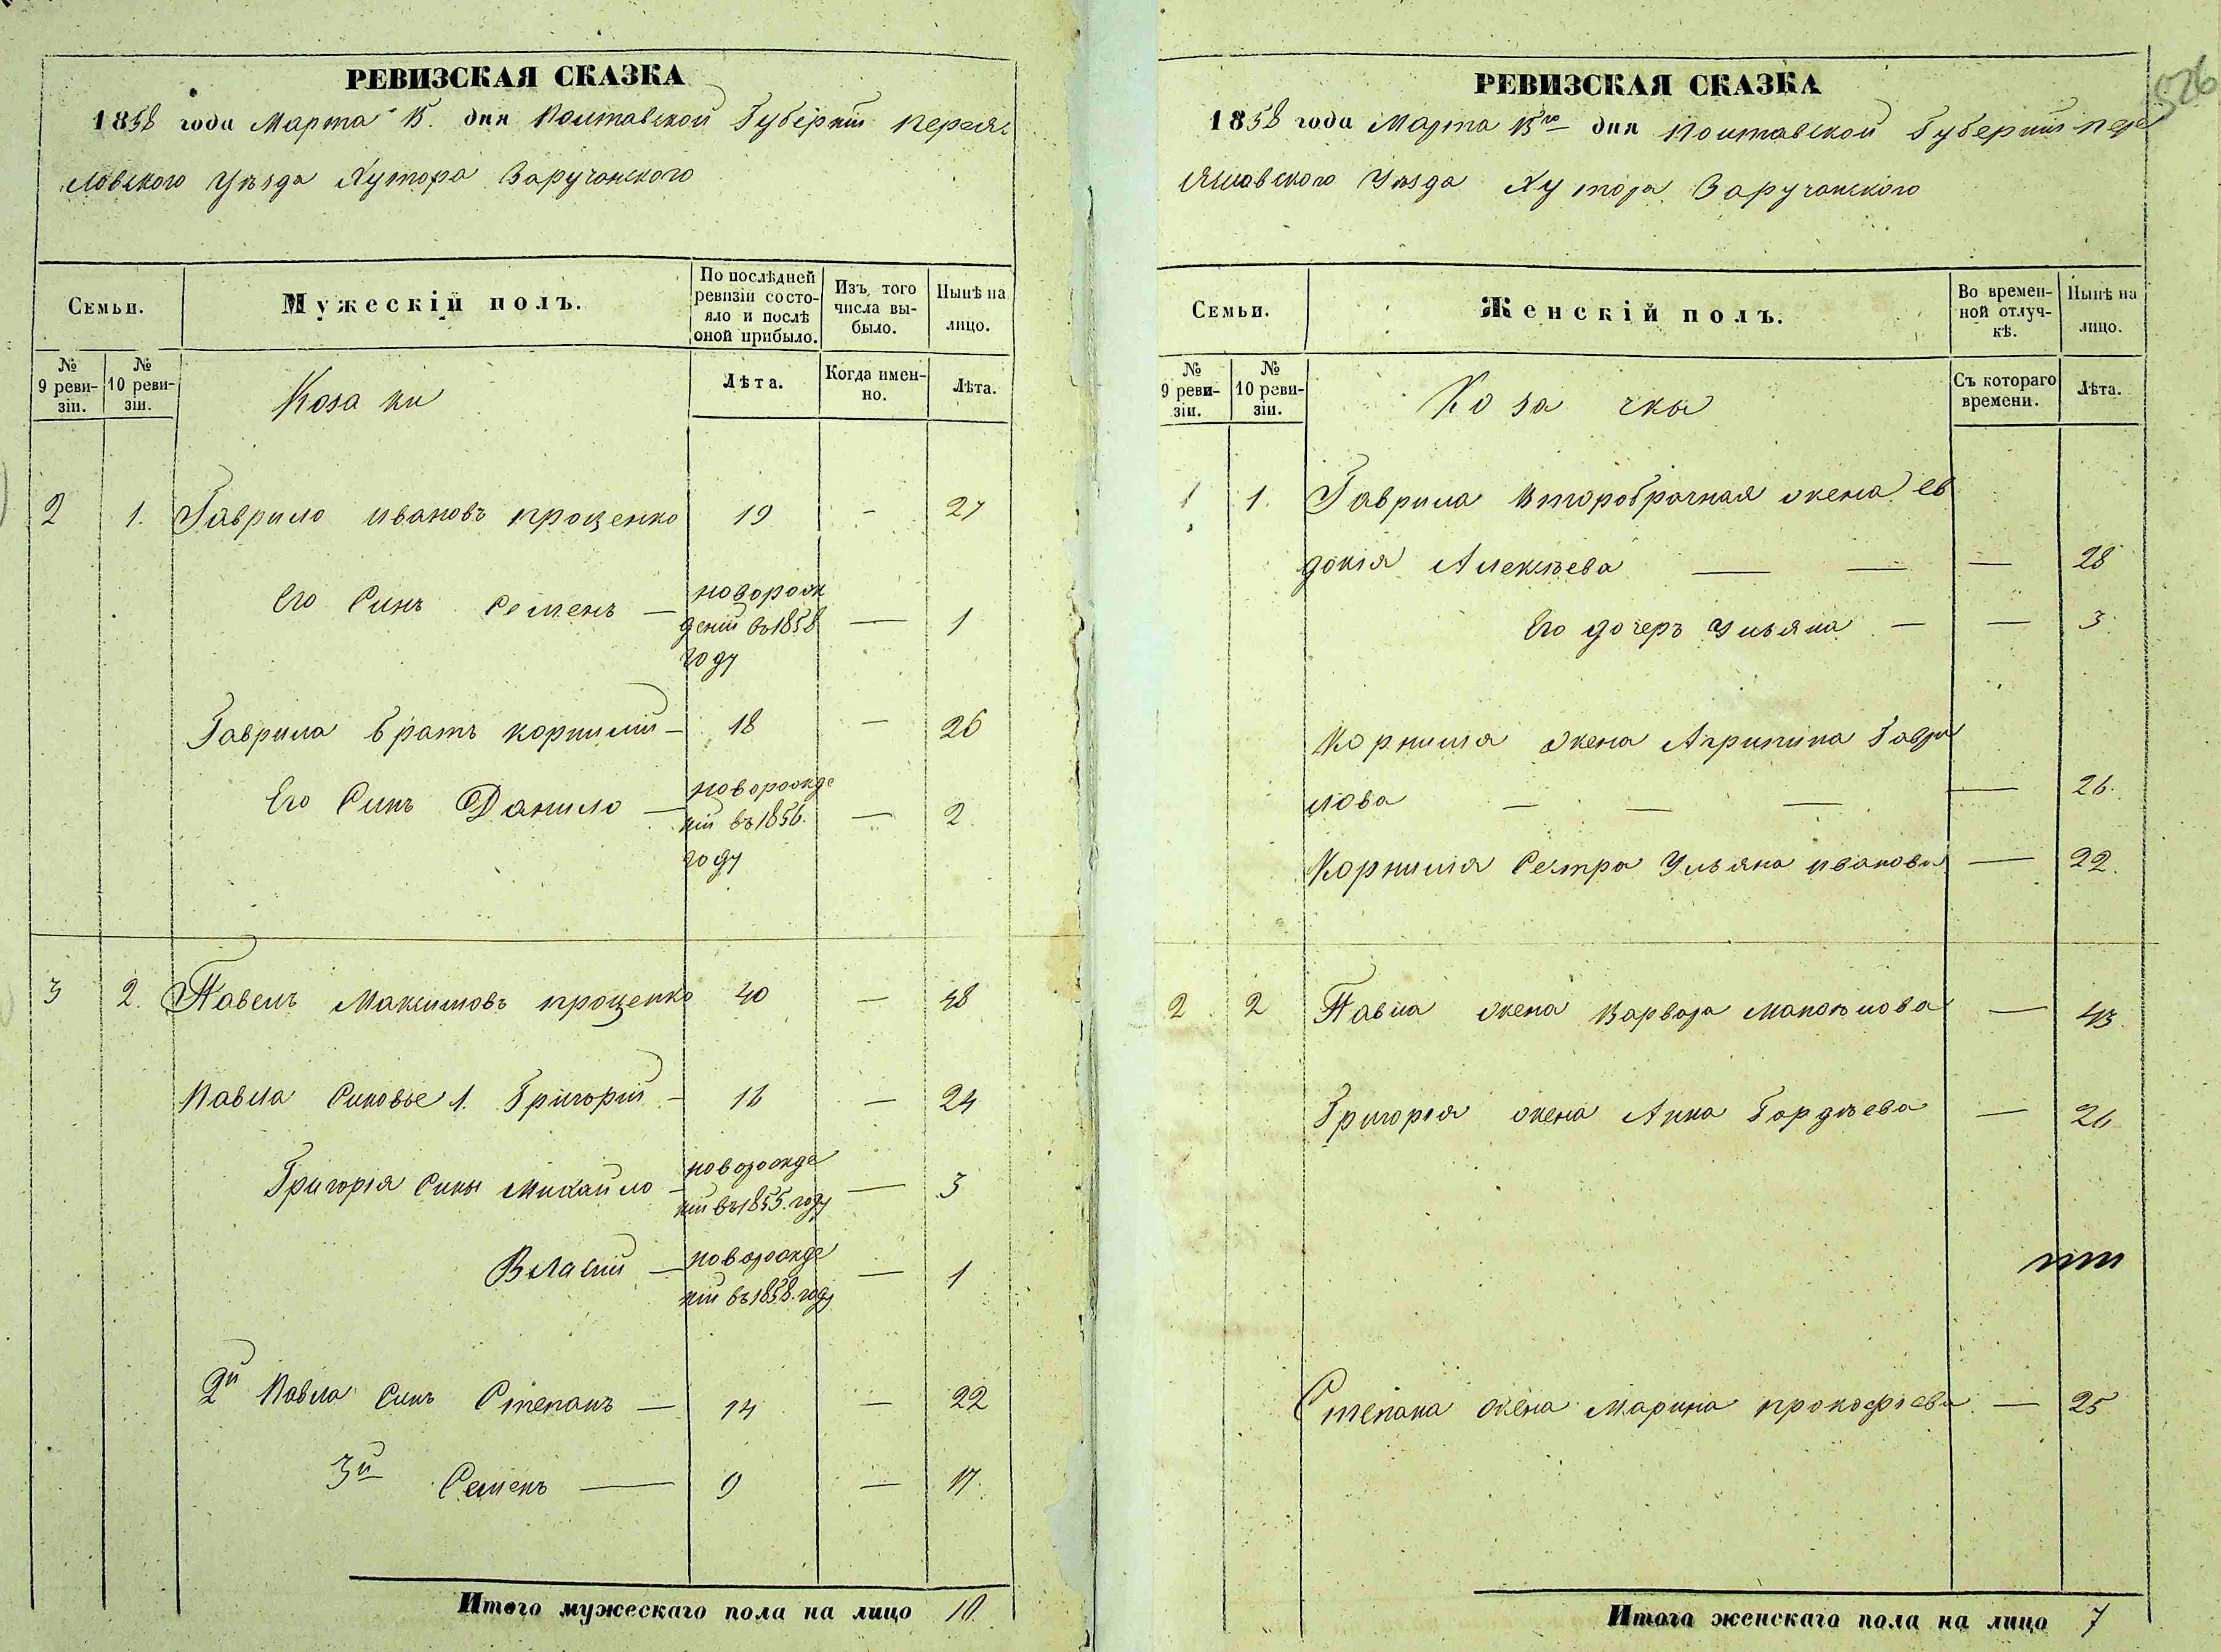 РЕВИЗСКАЯ СКАЗКА
1858 года Марта 15. дня Полтавской Губерніи Переяс
ловского Уѣзда Хутора Заручанского
Семьи.
Мужескій полъ.
По послѣдней ревизіи состояло и послѣ оной прибыло.
Изъ того числа выбыло.
Нынѣ на лицо.
№ 9 ревизіи.
№ 10 ревизіи.
Козаки
Лѣта.
Когда именно.
Лѣта.
2 1. Гаврило ивановъ проценко 19 - 27
Его Синъ Семенъ — новорож
деній въ 1858 — 1
году
Гаврила братъ корнилій — 18 — 26
Его Синъ Данило — новорожде
ній въ 1856. — 2
году
3 2. Павелъ Максимовъ проценко 40 — 48
Павла Синовье 1. Григорій — 16 — 24
Григорія Сины Михайло — новорожде
ній въ 1855. году — 3
Власій — новорожде
ній въ 1858. году — 1
2й Павла Синъ Степанъ — 14 — 22
3й Семенъ — 9 — 17.
Итого мужескаго пола на лицо 10
526
РЕВИЗСКАЯ СКАЗКА
1858 года Марта 15го дня Полтавской Губерніи пере
яславского Уѣзда Хутора Заручанского
Семьи.
Женскій полъ.
Во временной отлучкѣ.
Нынѣ на лицо.
№ 9 ревизіи.
№ 10 ревизіи.
Козачкы
Съ котораго времени.
Лѣта.
1 1. Гаврила второбрачная жена ев
докія Алексѣева — — — 28
Его дочеръ Ульяна — — 3.
Корнилія жена Агрипина Гаври
лова — — — — 26.
Корнилія Сестра Ульяна иванова — 22.
2 2 Павла жена Варвара Мануйлова — 43.
Григорія жена Анна Гордѣева — 26
Степана жена Марина прокофіева — 25
Итого женскаго пола на лицо 7